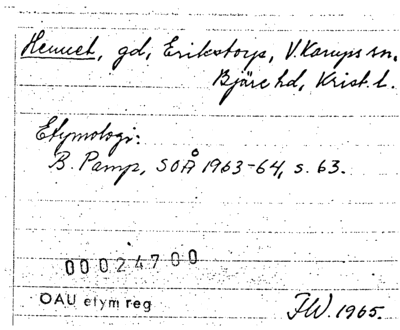 Hemmet, gd, Erikstorp, V. Karups sn.
Bjäre hd, Krist. l.
Etymologi:
B. Pamp, SOÅ 1963-64, s. 63.
00024700
OAU etym reg
FW. 1965.